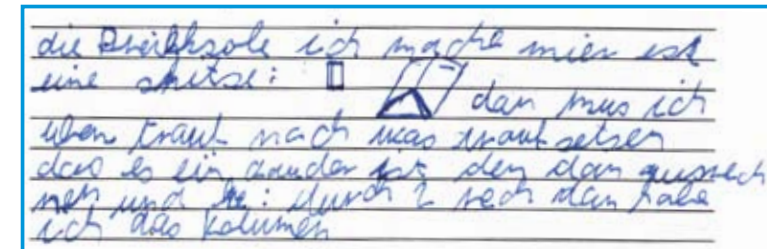 die ich mache mier est
eine spitse:
dan mus ich
uben trauf noch was trauf setsen
das es ein ist den dan ausrech
nen und durch 2 rech dan habe
ich das Volumen